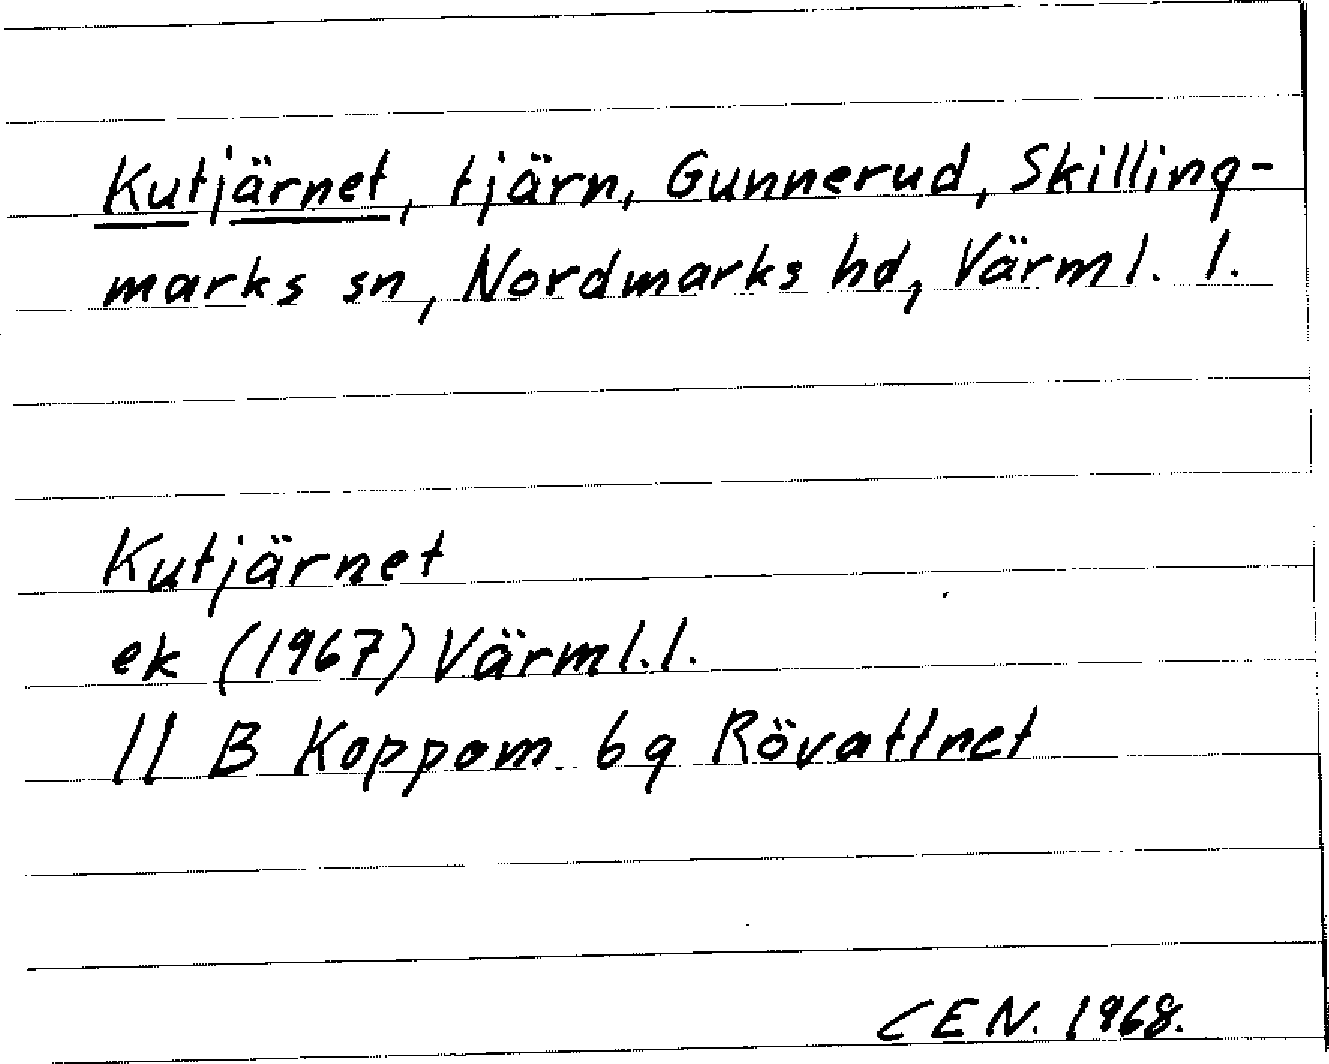 Kutjärnet, tjärn, Gunnerud, Skilling-
marks sn, Nordmarks hd, Värml. l.
Kutjärnet
ek (1967) Värml.l.
11 B Koppom 6g Rövattnet
CEN. 1968.